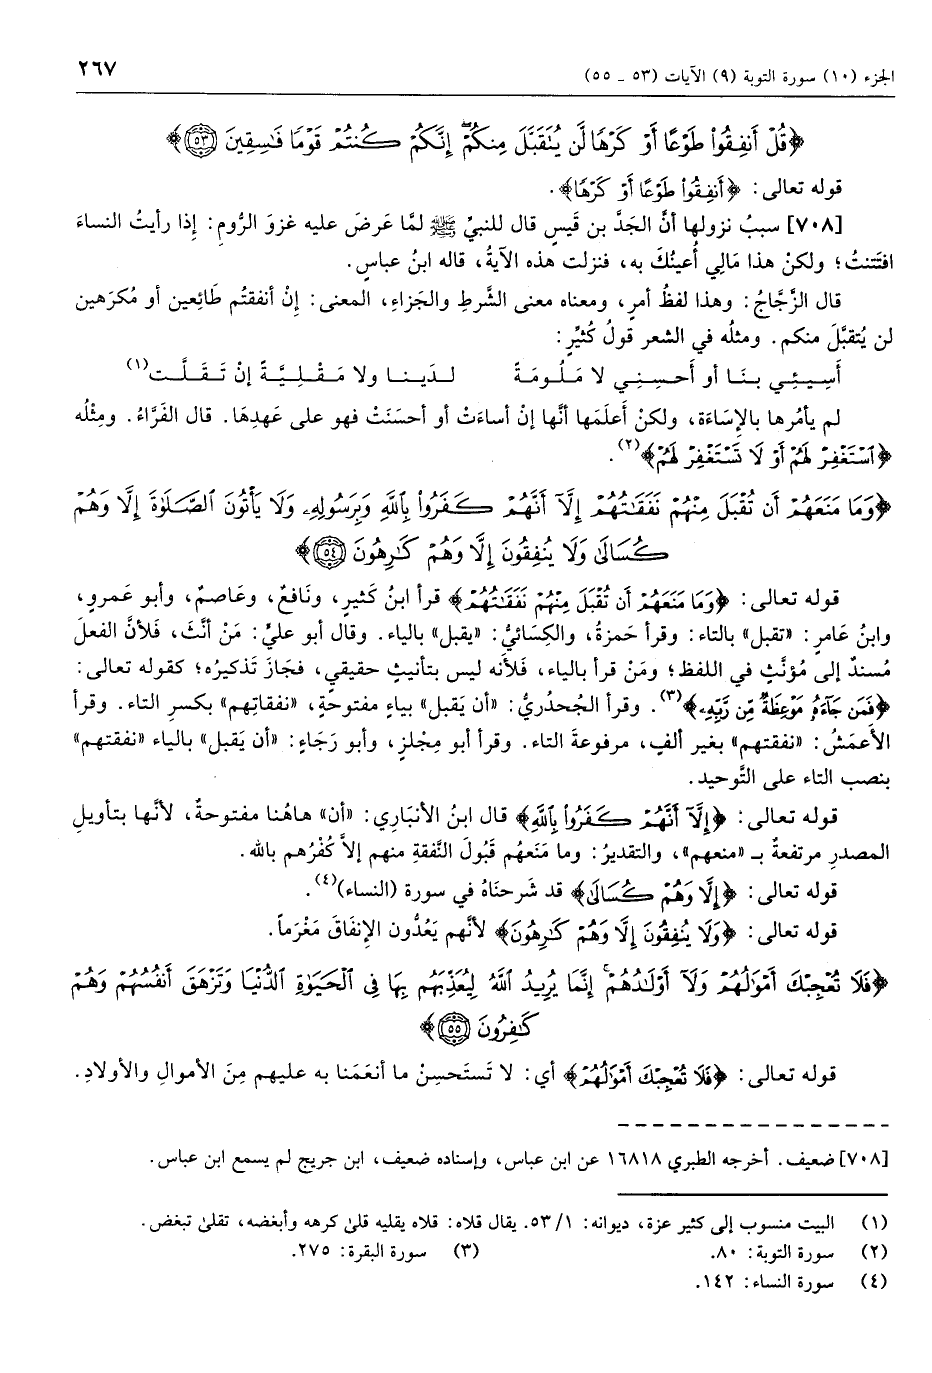 الجزء (١٠) سورة التوبة (٩) الآيات (٥٣ ـ ٥٥)
٢٦٧
﴿قُلْ أَنفِقُوا۟ طَوْعًا أَوْ كَرْهًا لَّن يُتَقَبَّلَ مِنكُمْ إِنَّكُمْ كُنتُمْ قَوْمًا فَـٰسِقِينَ ﴿٥٣﴾﴾
قوله تعالى: ﴿أَنفِقُوا۟ طَوْعًا أَوْ كَرْهًا﴾.
[٧٠٨] سببُ نزولها أنَّ الجَدَّ بن قَيسٍ قال للنبيِّ ﷺ لمَّا عَرضَ عليه غزوَ الرُّوم: إذا رأيتُ النساءَ
افتَتنتُ؛ ولكنْ هذا مَالِي أُعينُكَ به، فنزلت هذه الآيةُ، قاله ابنُ عباسٍ.
قال الزَّجَّاجُ: وهذا لفظُ أمرٍ، ومعناه معنى الشَّرطِ والجَزاءِ، المعنى: إنْ أنفقتُم طَائِعين أو مُكرَهين
لن يُتقبَّلَ منكم. ومثلُه في الشعر قولُ كُثيِّرٍ:
أَسِيئِي بنَا أو أَحسِنِي لا مَلُومَةً لدَينا ولا مَقْلِيَّةً إنْ تَقَلَّت(١)
لم يأمُرها بالإسَاءَة، ولكنْ أَعلَمَها أنَّها إنْ أساءَتْ أو أحسَنَتْ فهو على عَهدِهَا. قال الفَرَّاءُ. ومِثْلُه
﴿ٱسْتَغْفِرْ لَهُمْ أَوْ لَا تَسْتَغْفِرْ لَهُمْ﴾(٢).
﴿وَمَا مَنَعَهُمْ أَن تُقْبَلَ مِنْهُمْ نَفَقَـٰتُهُمْ إِلَّآ أَنَّهُمْ كَفَرُوا۟ بِٱللَّهِ وَبِرَسُولِهِۦ وَلَا يَأْتُونَ ٱلصَّلَوٰةَ إِلَّا وَهُمْ
كُسَالَىٰ وَلَا يُنفِقُونَ إِلَّا وَهُمْ كَـٰرِهُونَ ﴿٥٤﴾﴾
قوله تعالى: ﴿وَمَا مَنَعَهُمْ أَن تُقْبَلَ مِنْهُمْ نَفَقَـٰتُهُمْ﴾ قرأ ابنُ كَثيرٍ، ونَافعٌ، وعَاصمٌ، وأبو عَمروٍ،
وابنُ عَامرٍ: «تقبل» بالتاء: وقرأ حَمزةُ، والكِسَائيُّ: «يقبل» بالياء. وقال أبو عليٍّ: مَنْ أنَّثَ، فَلأنَّ الفعلَ
مُسندٌ إلى مُؤنَّثٍ في اللفظ؛ ومَنْ قرأ بالياء، فَلأنه ليس بتأنيثٍ حقيقيٍ، فجَازَ تَذكيرُه؛ كقوله تعالى:
﴿فَمَن جَآءَهُۥ مَوْعِظَةٌ مِّن رَّبِّهِۦ﴾(٣). وقرأ الجُحدَريُّ: «أن يَقبل» بياءٍ مفتوحةٍ، «نفقاتِهم» بكسرِ التاء. وقرأ
الأعمَشُ: «نفقتهم» بغير ألفٍ، مرفوعةَ التاء. وقرأ أبو مِجْلزٍ، وأبو رَجَاءٍ: «أن يَقبل» بالياء «نفقتَهم»
بنصب التاء على التَّوحيد.
قوله تعالى: ﴿إِلَّآ أَنَّهُمْ كَفَرُوا۟ بِٱللَّهِ﴾ قال ابنُ الأنبَارِي: «أن» هاهُنا مفتوحةٌ، لأنَّها بتأويلِ
المصدرِ مرتفعةٌ بـ «منعهم»، والتقديرُ: وما مَنَعَهُم قَبُولَ النَّفقةِ منهم إلاَّ كُفْرُهم بالله.
قوله تعالى: ﴿إِلَّا وَهُمْ كُسَالَىٰ﴾ قد شَرحنَاهُ في سورة (النساء)(٤).
قوله تعالى: ﴿وَلَا يُنفِقُونَ إِلَّا وَهُمْ كَـٰرِهُونَ﴾ لأنَّهم يَعُدُّون الإنفَاقَ مَغْرَماً.
﴿فَلَا تُعْجِبْكَ أَمْوَٰلُهُمْ وَلَآ أَوْلَـٰدُهُمْ إِنَّمَا يُرِيدُ ٱللَّهُ لِيُعَذِّبَهُم بِهَا فِى ٱلْحَيَوٰةِ ٱلدُّنْيَا وَتَزْهَقَ أَنفُسُهُمْ وَهُمْ
كَـٰفِرُونَ ﴿٥٥﴾﴾
قوله تعالى: ﴿فَلَا تُعْجِبْكَ أَمْوَٰلُهُمْ﴾ أي: لا تَستَحسِنْ ما أنعَمَنا به عليهم مِنَ الأموالِ والأولادِ.
[٧٠٨] ضعيف. أخرجه الطبري ١٦٨١٨ عن ابن عباس، وإسناده ضعيف، ابن جريج لم يسمع ابن عباس.
(١) البيت منسوب إلى كثير عزة، ديوانه: ١/ ٥٣. يقال قلاه: قلاه يقليه قلىٰ كرهه وأبغضه، تقلىٰ تبغض.
(٢) سورة التوبة: ٨٠. (٣) سورة البقرة: ٢٧٥.
(٤) سورة النساء: ١٤٢.